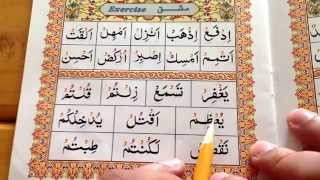 Exercise مشق
اِدْفَعْ اِذْهَبْ اَنْزِلْ اَمْهِلْ اَلْقَتْ
اَتْمِمْ اَمْسِكْ اِصْبِرْ اُرْكُضْ اَحْسِنْ
يَغْفِرُ تَسْمَعُ زِلْتُمْ قُلْتُمْ
يُعْظِمُ اَقْتُلُ يُدْخِلْكُمْ
نَقْصُصُ لَكُنْتُمْ طِبْتُمْ